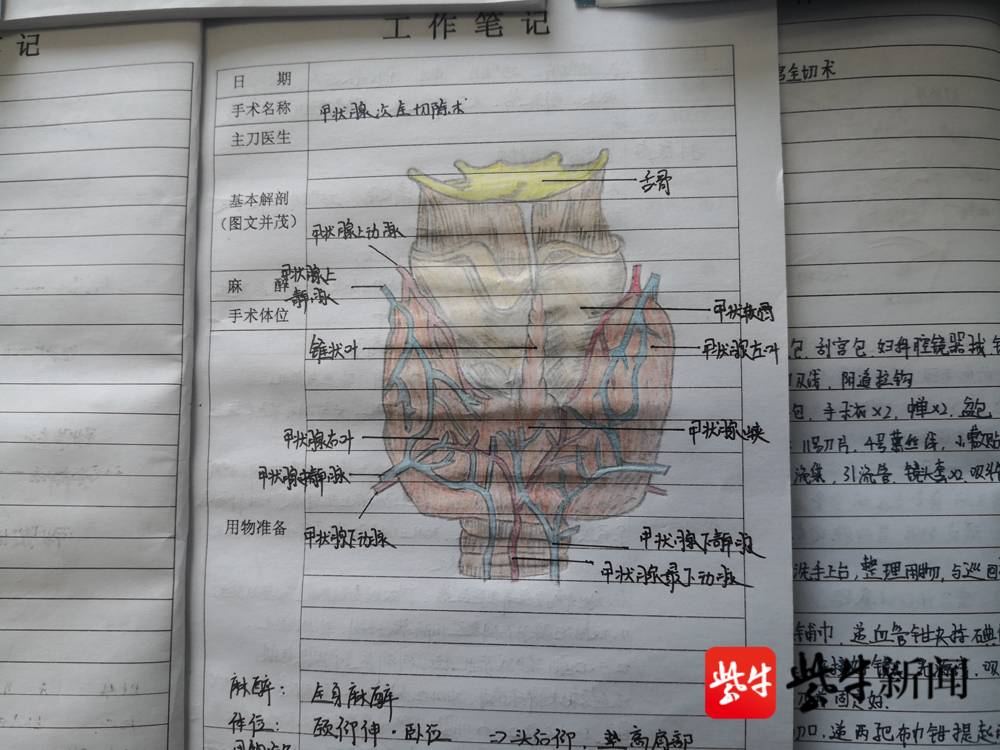 记
工作笔记
日 期
手术名称 甲状腺次全切除术
主刀医生
基本解剖
(图文并茂)
舌骨
甲状腺上动脉
甲状腺上
静脉
麻 醉
手术体位
甲状软骨
锥状叶
甲状腺左叶
甲状腺右叶
甲状腺峡
甲状腺中静脉
用物准备
甲状腺下动脉
甲状腺下静脉
甲状腺最下动脉
麻醉: 全身麻醉
体位: 颈仰伸·卧位 => 头后仰, 垫高肩部
全切术
包, 刮宫包, 妇科腔镜器械
阴道拉钩
包, 手术衣×2, 单×2, 盆包
11号刀片, 4号慕丝线, 小敷贴
引流管, 镜头套×2, 吸
洗手上台, 整理用物, 与巡回
铺巾, 递血管钳夹持碘
固定好.
切口, 递两把布巾钳提起
紫牛
紫牛新闻